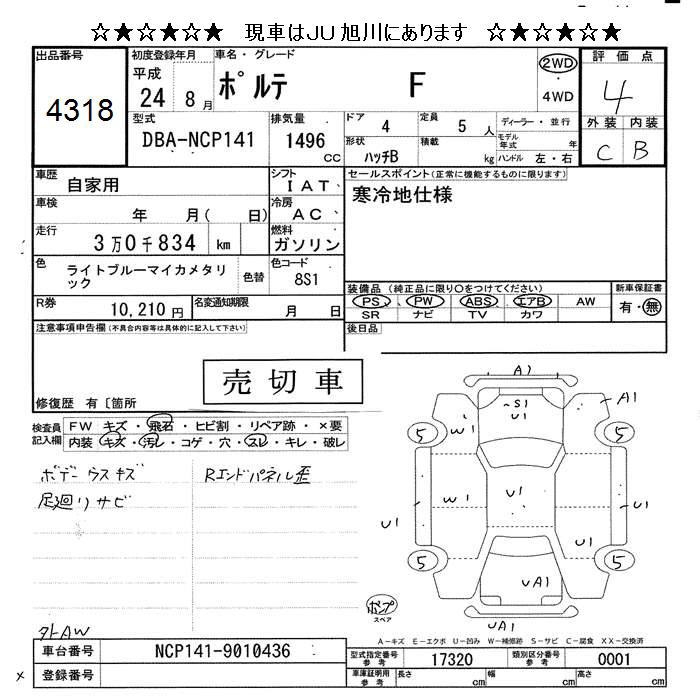 ☆★☆★☆★ 現車はJU旭川にあります ☆★☆★☆★
出品番号 初度登録年月 車名・グレード 評価点
4318 平成 24 8月 ポルテ F 2WD 4WD 4
型式 排気量 ドア 定員 ディーラー・並行 外装 内装
DBA-NCP141 1496 CC 4 5人 モデル年式 年 C B
形状 積載 ハンドル
ハッチB kg 左・右
車歴 自家用 シフト IAT セールスポイント(正常に機能するものに限ります)
車検 年 月( 日) 冷房 AC 寒冷地仕様
走行 3万0千834 km 燃料 ガソリン
色 ライトブルーマイカメタリック 色替 色コード 8S1
装備品(純正品に限り○をつけてください) 新車保証書
R券 10,210円 名変通知期限 月 日 PS PW ABS エアB AW 有・無
SR ナビ TV カワ
注意事項申告欄(不具合内容等は具体的に記入して下さい) 後日品
売切車
修復歴 有〔箇所
検査員記入欄 FW キズ・飛石・ヒビ割・リペア跡・×要
内装 キズ・汚レ・コゲ・穴・スレ・キレ・破レ
ボデーウスキズ Rエンドパネル歪
足廻りサビ
外AW
A1
S1
U1
A1
W1
5
5
W1
U1
U1
U1
U1
5
5
UA1
UA1
ポンプ
スペア
A-キズ E-エクボ U-凹み W-補修跡 S-サビ C-腐食 XX-交換済
車台番号 NCP141-9010436 型式指定番号 参考 17320 類別区分番号 参考 0001
× 登録番号 車庫証明用 参考 長さ cm 幅 cm 高さ cm